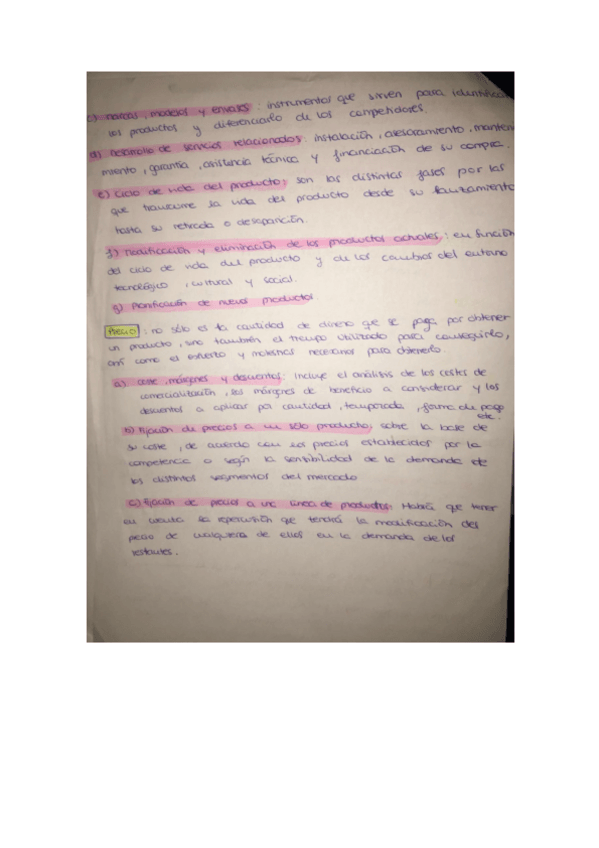 c) marcas, modelos y envases: instrumentos que sirven para identificar
los productos y diferenciarlo de los competidores.
d) Desarrollo de servicios relacionados: instalación, asesoramiento, manteni
miento, garantía, asistencia técnica y financiación de su compra.
e) Ciclo de vida del producto: son las distintas fases por las
que transcurre la vida del producto desde su lanzamiento
hasta su retirada o desaparición.
f) modificación y eliminación de los productos actuales: en función
del ciclo de vida del producto y de los cambios del entorno
tecnológico, cultural y social.
g) Planificación de nuevos productos
Precio: no sólo es la cantidad de dinero que se paga por obtener
un producto, sino también el tiempo utilizado para conseguirlo,
así como el esfuerzo y molestias necesarios para obtenerlo.
a) coste, márgenes y descuentos: Incluye el análisis de los costes de
comercialización, los márgenes de beneficio a considerar y los
descuentos a aplicar por cantidad, temporada, forma de pago
etc.
b) Fijación de precios a un sólo producto, sobre la base de
su coste, de acuerdo con los precios establecidos por la
competencia o según la sensibilidad de la demanda de
los distintos segmentos del mercado
c) Fijación de precios a una línea de productos: Habrá que tener
en cuenta la repercusión que tendrá la modificación del
precio de cualquiera de ellos en la demanda de los
restantes.